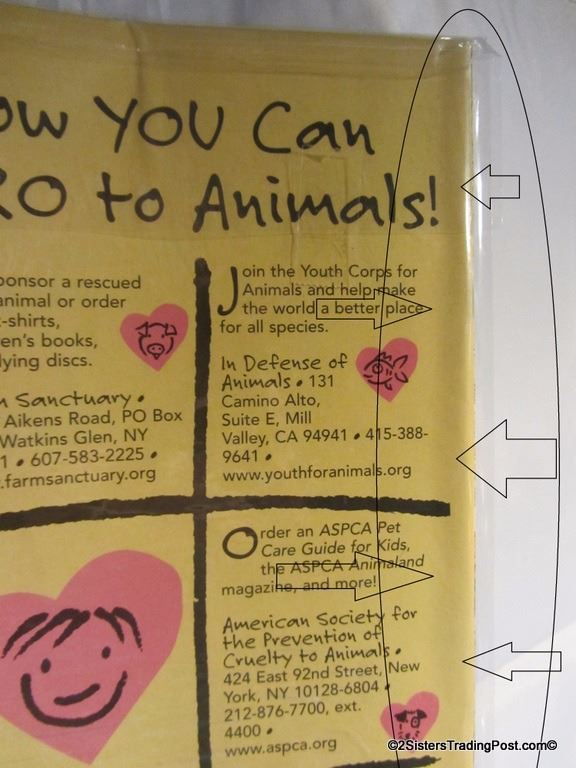 ow YOU Can
RO to Animals!
ponsor a rescued
animal or order
-shirts,
en's books,
lying discs.
n Sanctuary •
Aikens Road, PO Box
Watkins Glen, NY
1 • 607-583-2225 •
.farmsanctuary.org
Join the Youth Corps for
Animals and help make
the world a better place
for all species.
In Defense of
Animals • 131
Camino Alto,
Suite E, Mill
Valley, CA 94941 • 415-388-
9641 •
www.youthforanimals.org
Order an ASPCA Pet
Care Guide for Kids,
the ASPCA Animaland
magazine, and more!
American Society for
the Prevention of
Cruelty to Animals •
424 East 92nd Street, New
York, NY 10128-6804 •
212-876-7700, ext.
4400 •
www.aspca.org
©2SistersTradingPost.com©